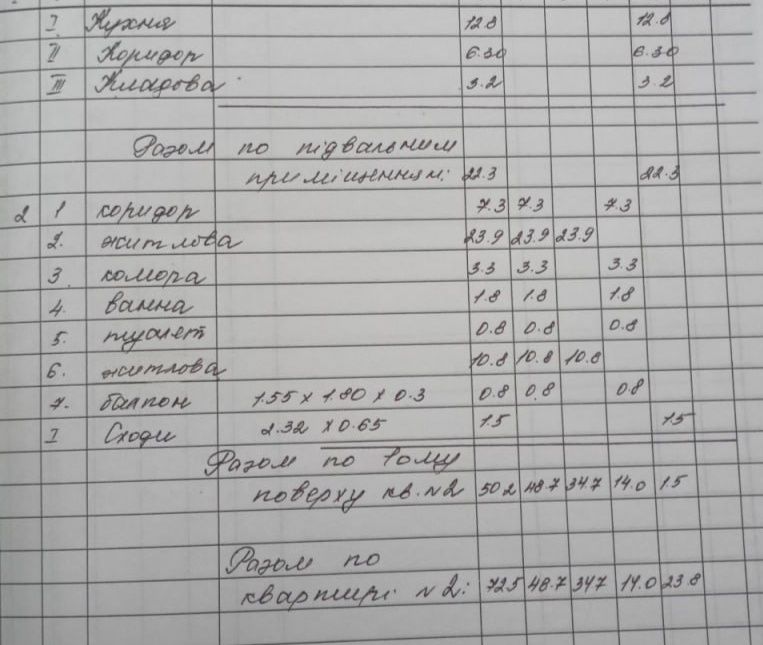 I Кухня 12.8 12.8
II Коридор 6.30 6.30
III Кладова 3.2 3.2
Разом по підвальним
приміщенням: 22.3 22.3
2 1 коридор 7.3 7.3 7.3
2. житлова 23.9 23.9 23.9
3 комора 3.3 3.3 3.3
4. ванна 1.8 1.8 1.8
5. туалет 0.8 0.8 0.8
6. житлова 10.8 10.8 10.8
7. балкон 1.55 x 1.80 x 0.3 0.8 0.8 0.8
I Сходи 2.32 x 0.65 1.5 1.5
Разом по 1ому
поверху кв. N2 50.2 48.7 34.7 14.0 1.5
Разом по
квартирі N2: 72.5 48.7 34.7 14.0 23.8